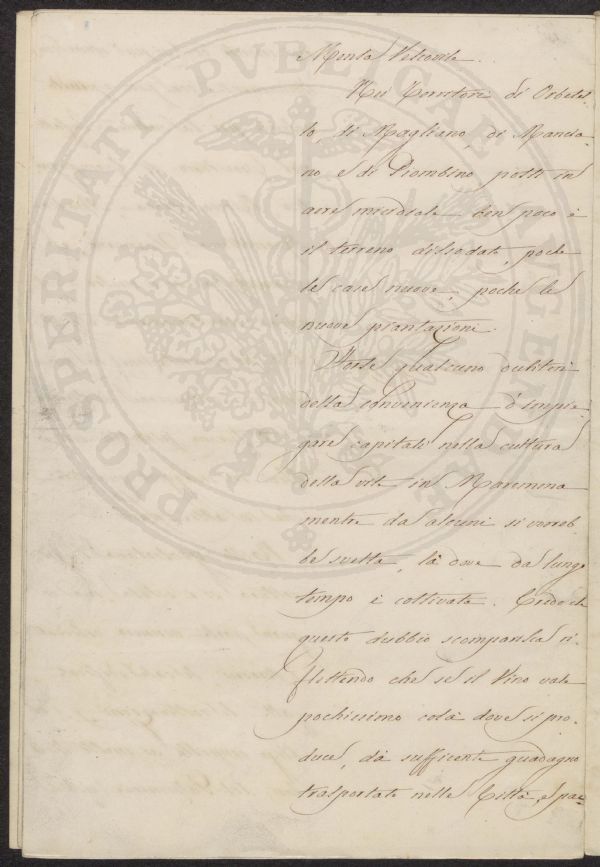 Monta Viscente.
Nei Territori di Orbetel-
lo, di Magliano, di Mancia-
no e di Piombino posti in
aere micidiale ben poco è
il terreno dissodato, poche
le case nuove, poche le
nuove piantazioni.
Forse qualcuno dubiterà
della convenienza d'impie-
gare capitali nella cultura
della vite in Maremma
mentre da alcuni si vorreb-
be svelta, là dove da lungo
tempo è coltivata. Credo che
questo dubbio scomparisca ri-
flettendo che se il Vino vale
pochissimo colà dove si pro-
duce, dà sufficente guadagno
trasportato nelle Città, e pae-
PROSPERITATI PVBLICAE AVGENDAE